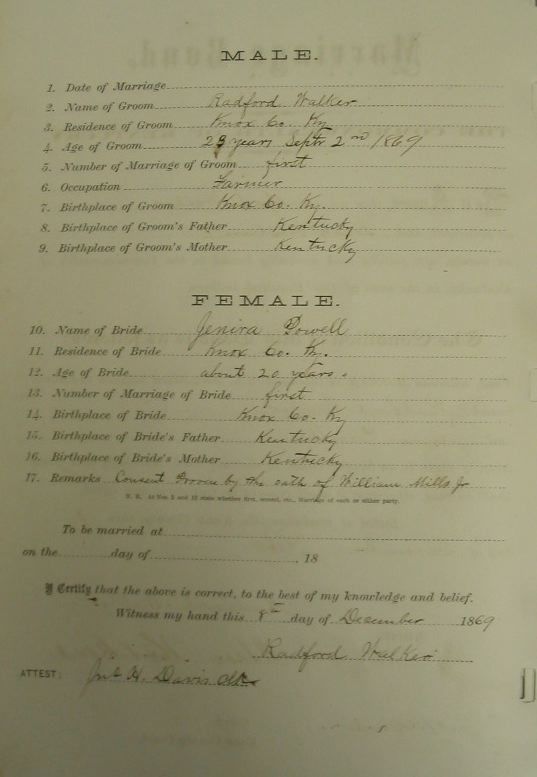 MALE.
1. Date of Marriage
2. Name of Groom Radford Walker
3. Residence of Groom Knox Co. Ky
4. Age of Groom 23 years Septr 2nd 1869
5. Number of Marriage of Groom first
6. Occupation Farmer
7. Birthplace of Groom Knox Co. Ky.
8. Birthplace of Groom's Father Kentucky
9. Birthplace of Groom's Mother Kentucky
FEMALE.
10. Name of Bride Jenira Powell
11. Residence of Bride Knox Co. Ky.
12. Age of Bride about 20 years.
13. Number of Marriage of Bride first
14. Birthplace of Bride Knox Co. Ky
15. Birthplace of Bride's Father Kentucky
16. Birthplace of Bride's Mother Kentucky
17. Remarks Consent Proven by the oath of William Mills Jr
N. B. At Nos. 5 and 13 state whether first, second, etc., Marriage of each or either party.
To be married at
on the day of , 18
I Certify that the above is correct, to the best of my knowledge and belief.
Witness my hand this 8th day of December 1869
Radford Walker
ATTEST: H. Davis clk